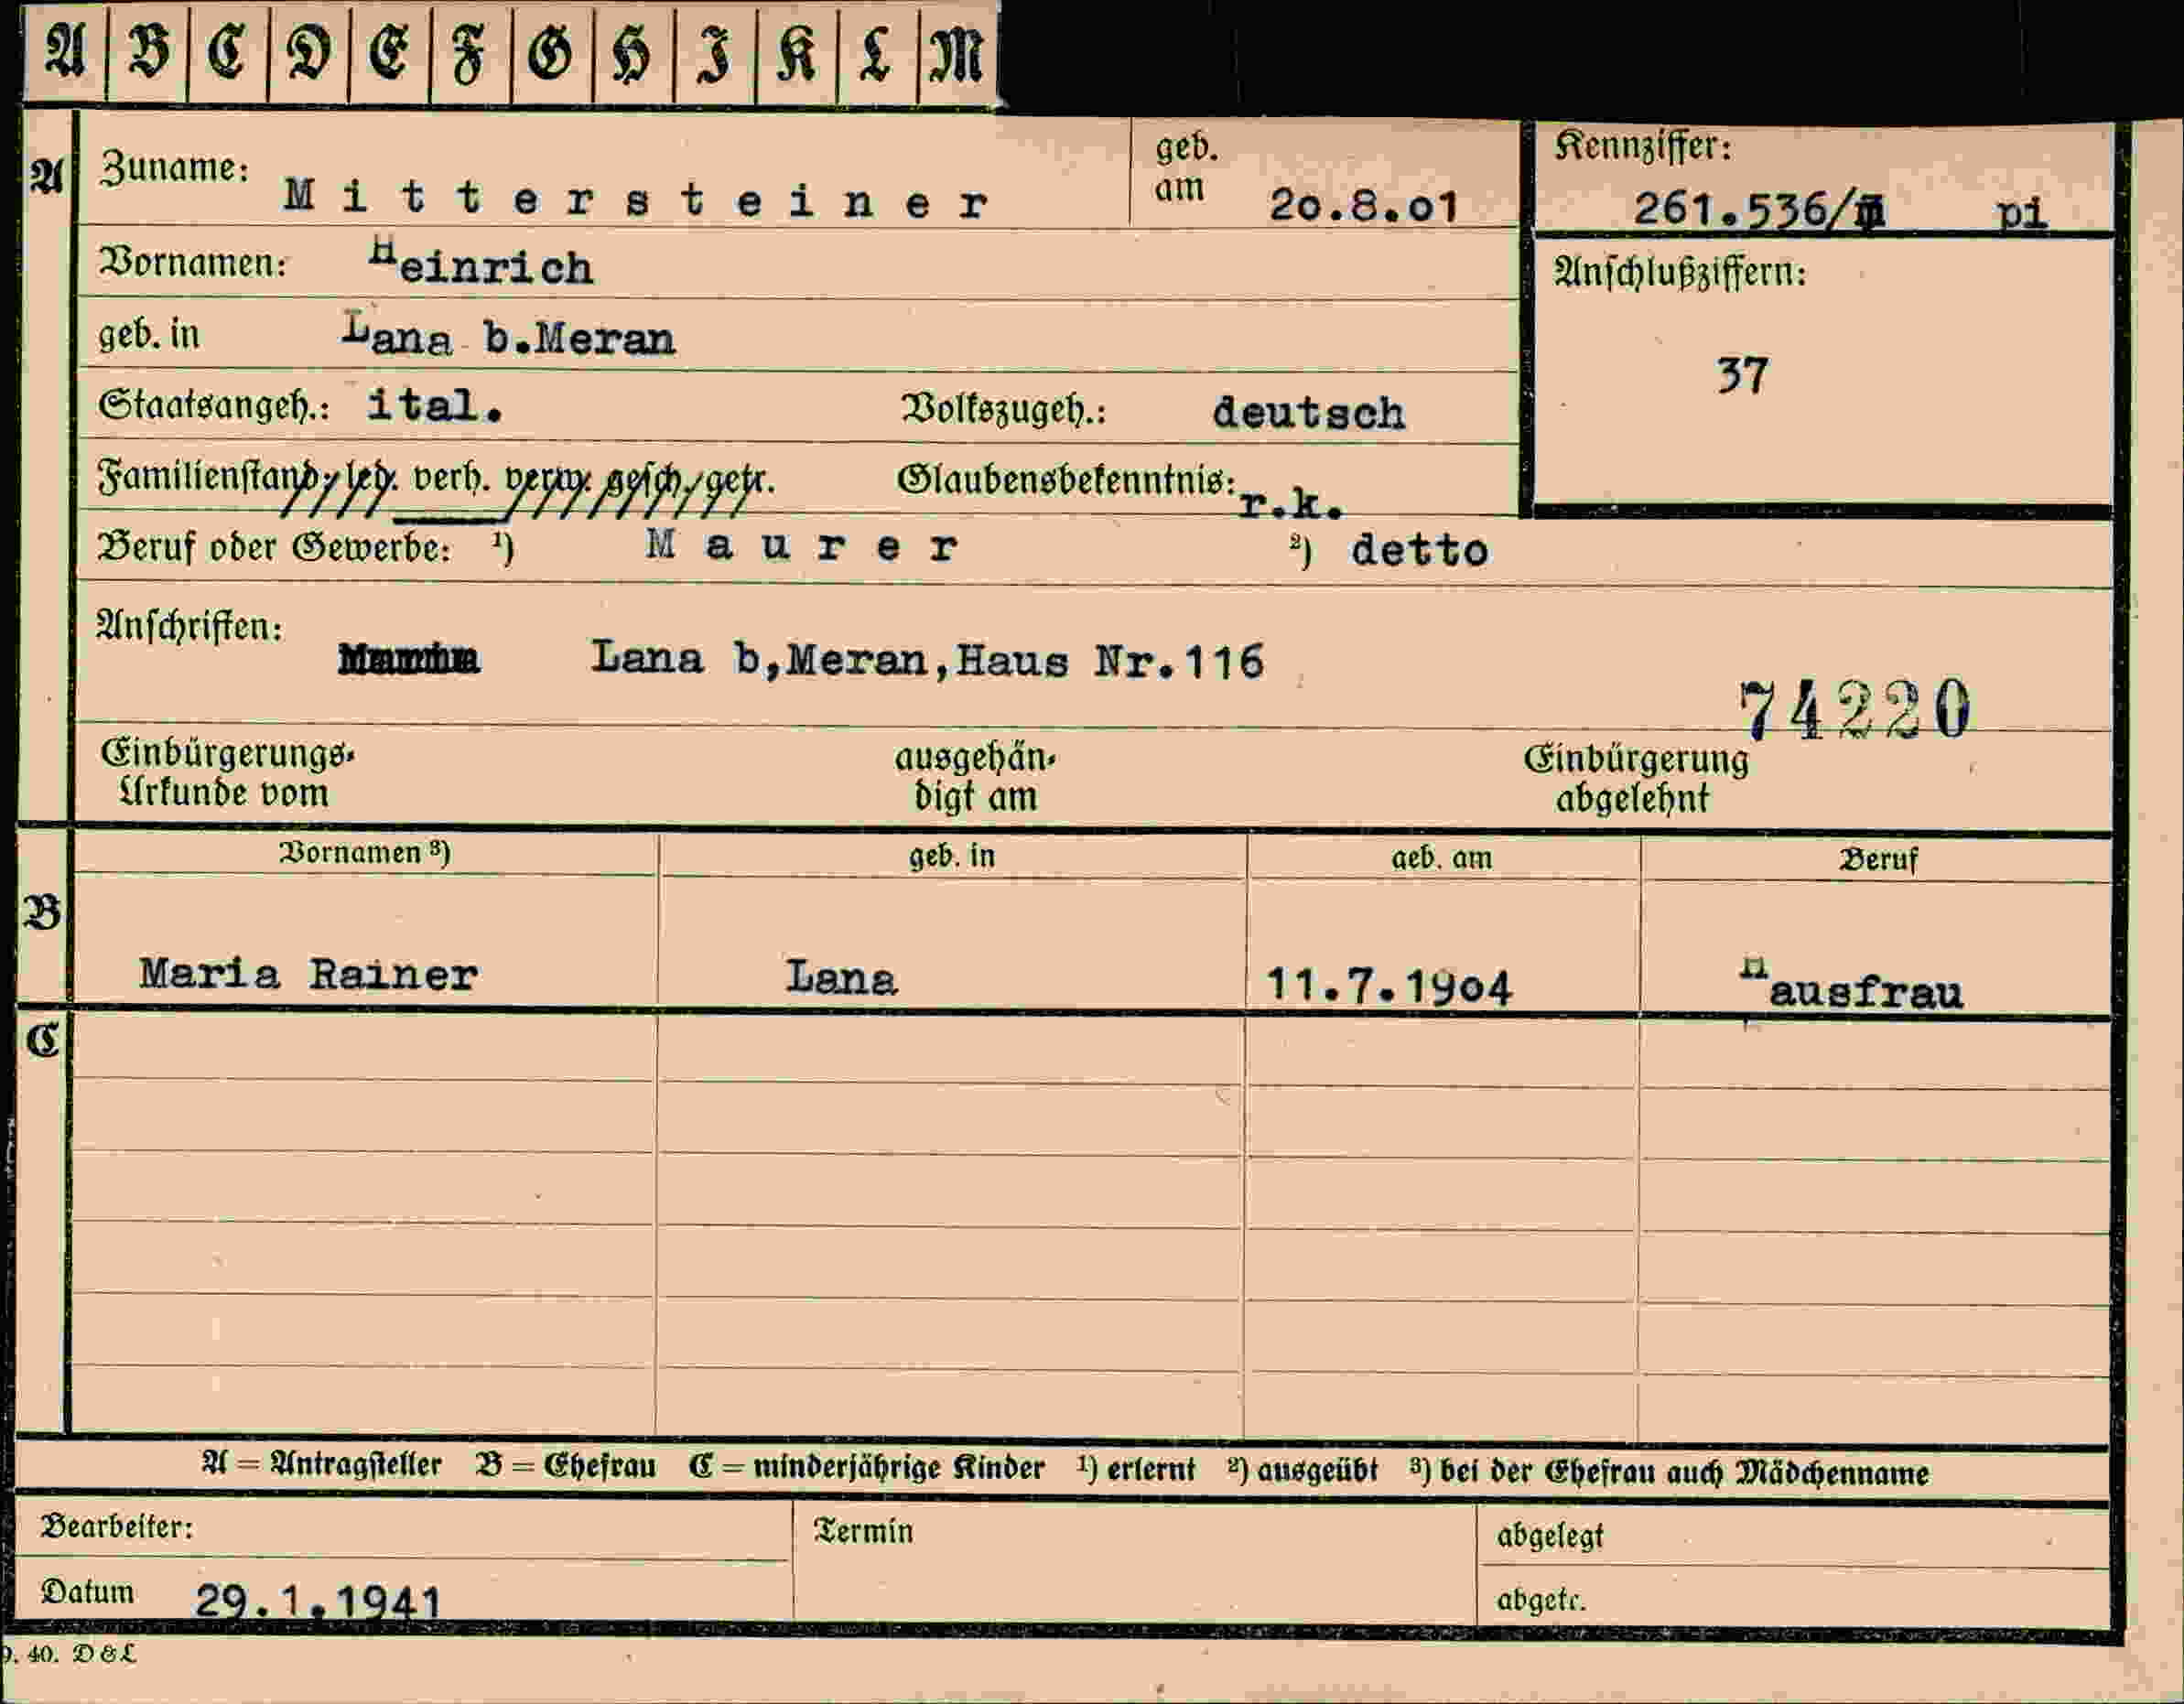 A B C D E F G H I K L M
A Zuname: Mittersteiner geb. am 20.8.01 Kennziffer: 261.536/ pi
Vornamen: Heinrich Anschlußziffern:
geb. in Lana b.Meran 37
Staatsangeh.: ital. Volkszugeh.: deutsch
Familienstand: led. verh. verw. gesch. getr. Glaubensbekenntnis: r.k.
Beruf oder Gewerbe: ¹) Maurer ²) detto
Anschriften: Lana b,Meran,Haus Nr.116
74220
Einbürgerungs- ausgehän- Einbürgerung
Urkunde vom digt am abgelehnt
Vornamen ³) geb. in geb. am Beruf
B
Maria Rainer Lana 11.7.1904 Hausfrau
C
A = Antragsteller B = Ehefrau C = minderjährige Kinder ¹) erlernt ²) ausgeübt ³) bei der Ehefrau auch Mädchenname
Bearbeiter: Termin abgelegt
Datum 29.1.1941 abgetr.
9. 40. D & L